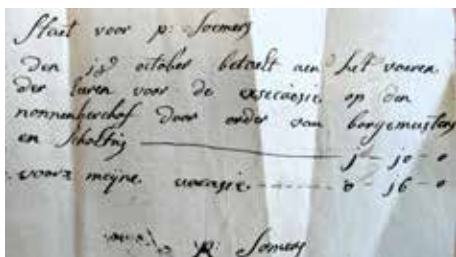 Staet voor p: Soemers
Den october betaelt aen het voeren
der luren voor de exsecaesie op den
nonnenkerchof door order van borgemusters
en Scholtis j - jo - o
voorz meijne vacasie o - j6 - o
p: Somers